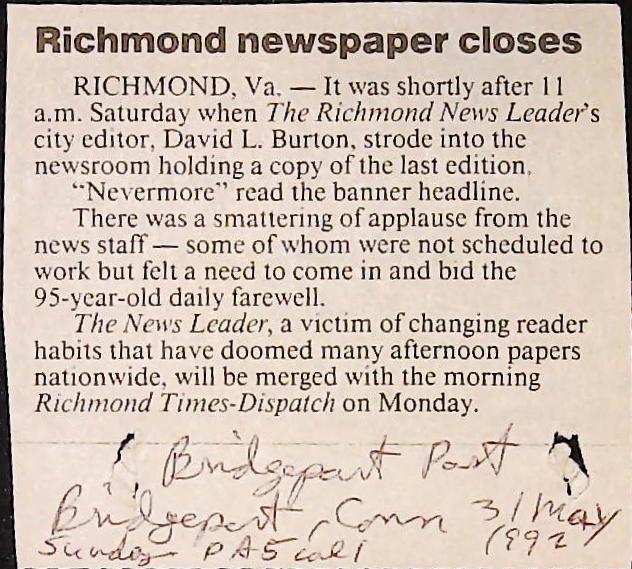 Richmond newspaper closes
RICHMOND, Va. — It was shortly after 11
a.m. Saturday when The Richmond News Leader's
city editor, David L. Burton, strode into the
newsroom holding a copy of the last edition.
“Nevermore” read the banner headline.
There was a smattering of applause from the
news staff — some of whom were not scheduled to
work but felt a need to come in and bid the
95-year-old daily farewell.
The News Leader, a victim of changing reader
habits that have doomed many afternoon papers
nationwide, will be merged with the morning
Richmond Times-Dispatch on Monday.
Bridgeport Post
Bridgeport, Conn 31 May
Sunday P A5 col 1 1992